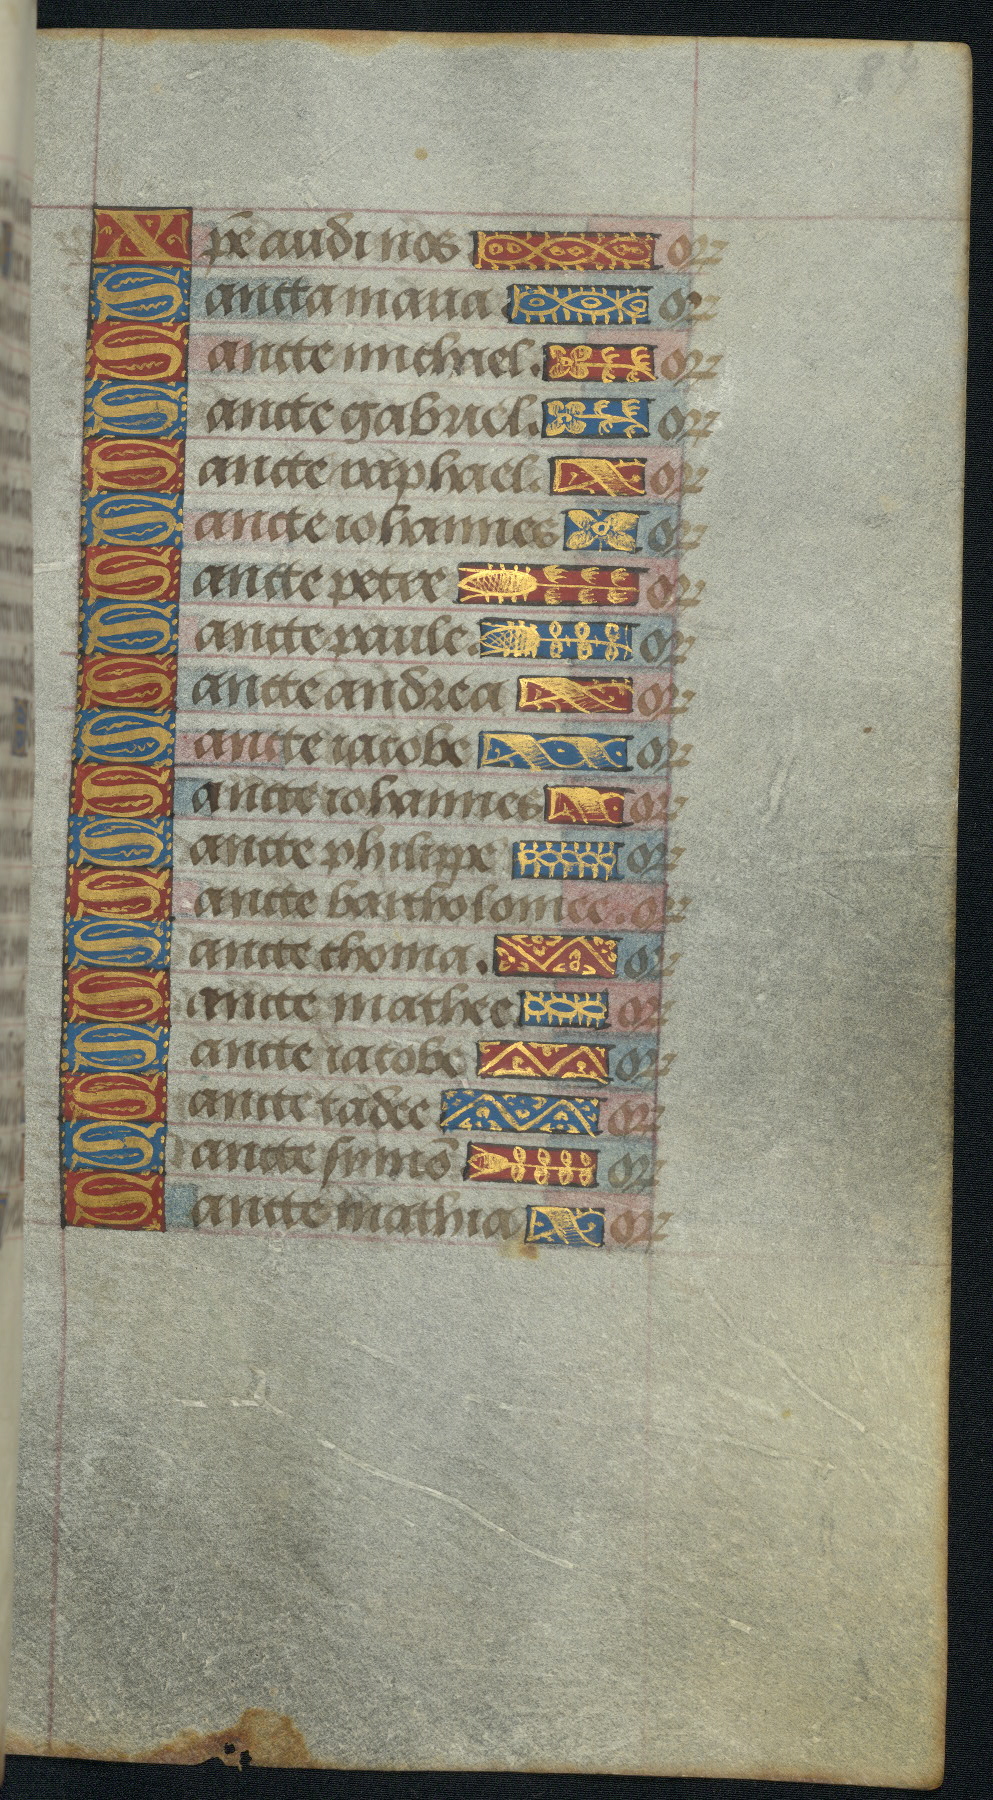 Xp̄e audi nos or
Sancta maria or
Sancte michael. or
Sancte gabriel. or
Sancte raphael. or
Sancte iohannes or
Sancte petre or
Sancte paule. or
Sancte andrea or
Sancte iacobe or
Sancte iohannes or
Sancte philippe or
Sancte bartholomee. or
Sancte thoma. or
Sancte mathee or
Sancte iacobe or
Sancte tadee or
Sancte simō or
Sancte mathia or